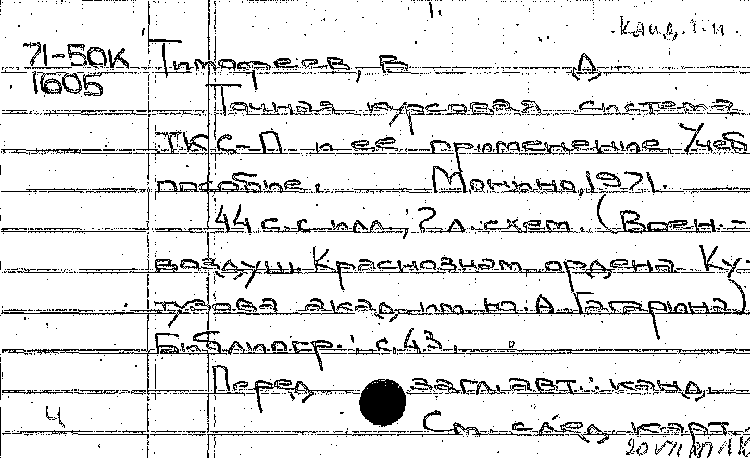 канд. т. н.
71-50К Тимофеев, В Д
1605
Точная курсовая система
ТКС-П и её применение. Учеб.
пособие. Монино, 1971.
44 с. с илл.; 2 л. схем. (Воен.-
воздуш. Краснознам. ордена Ку-
тузова акад. им. Ю. А. Гагарина)
Библиогр.: с. 43.
Перед загл. авт.: канд.
4 См. след. карт.